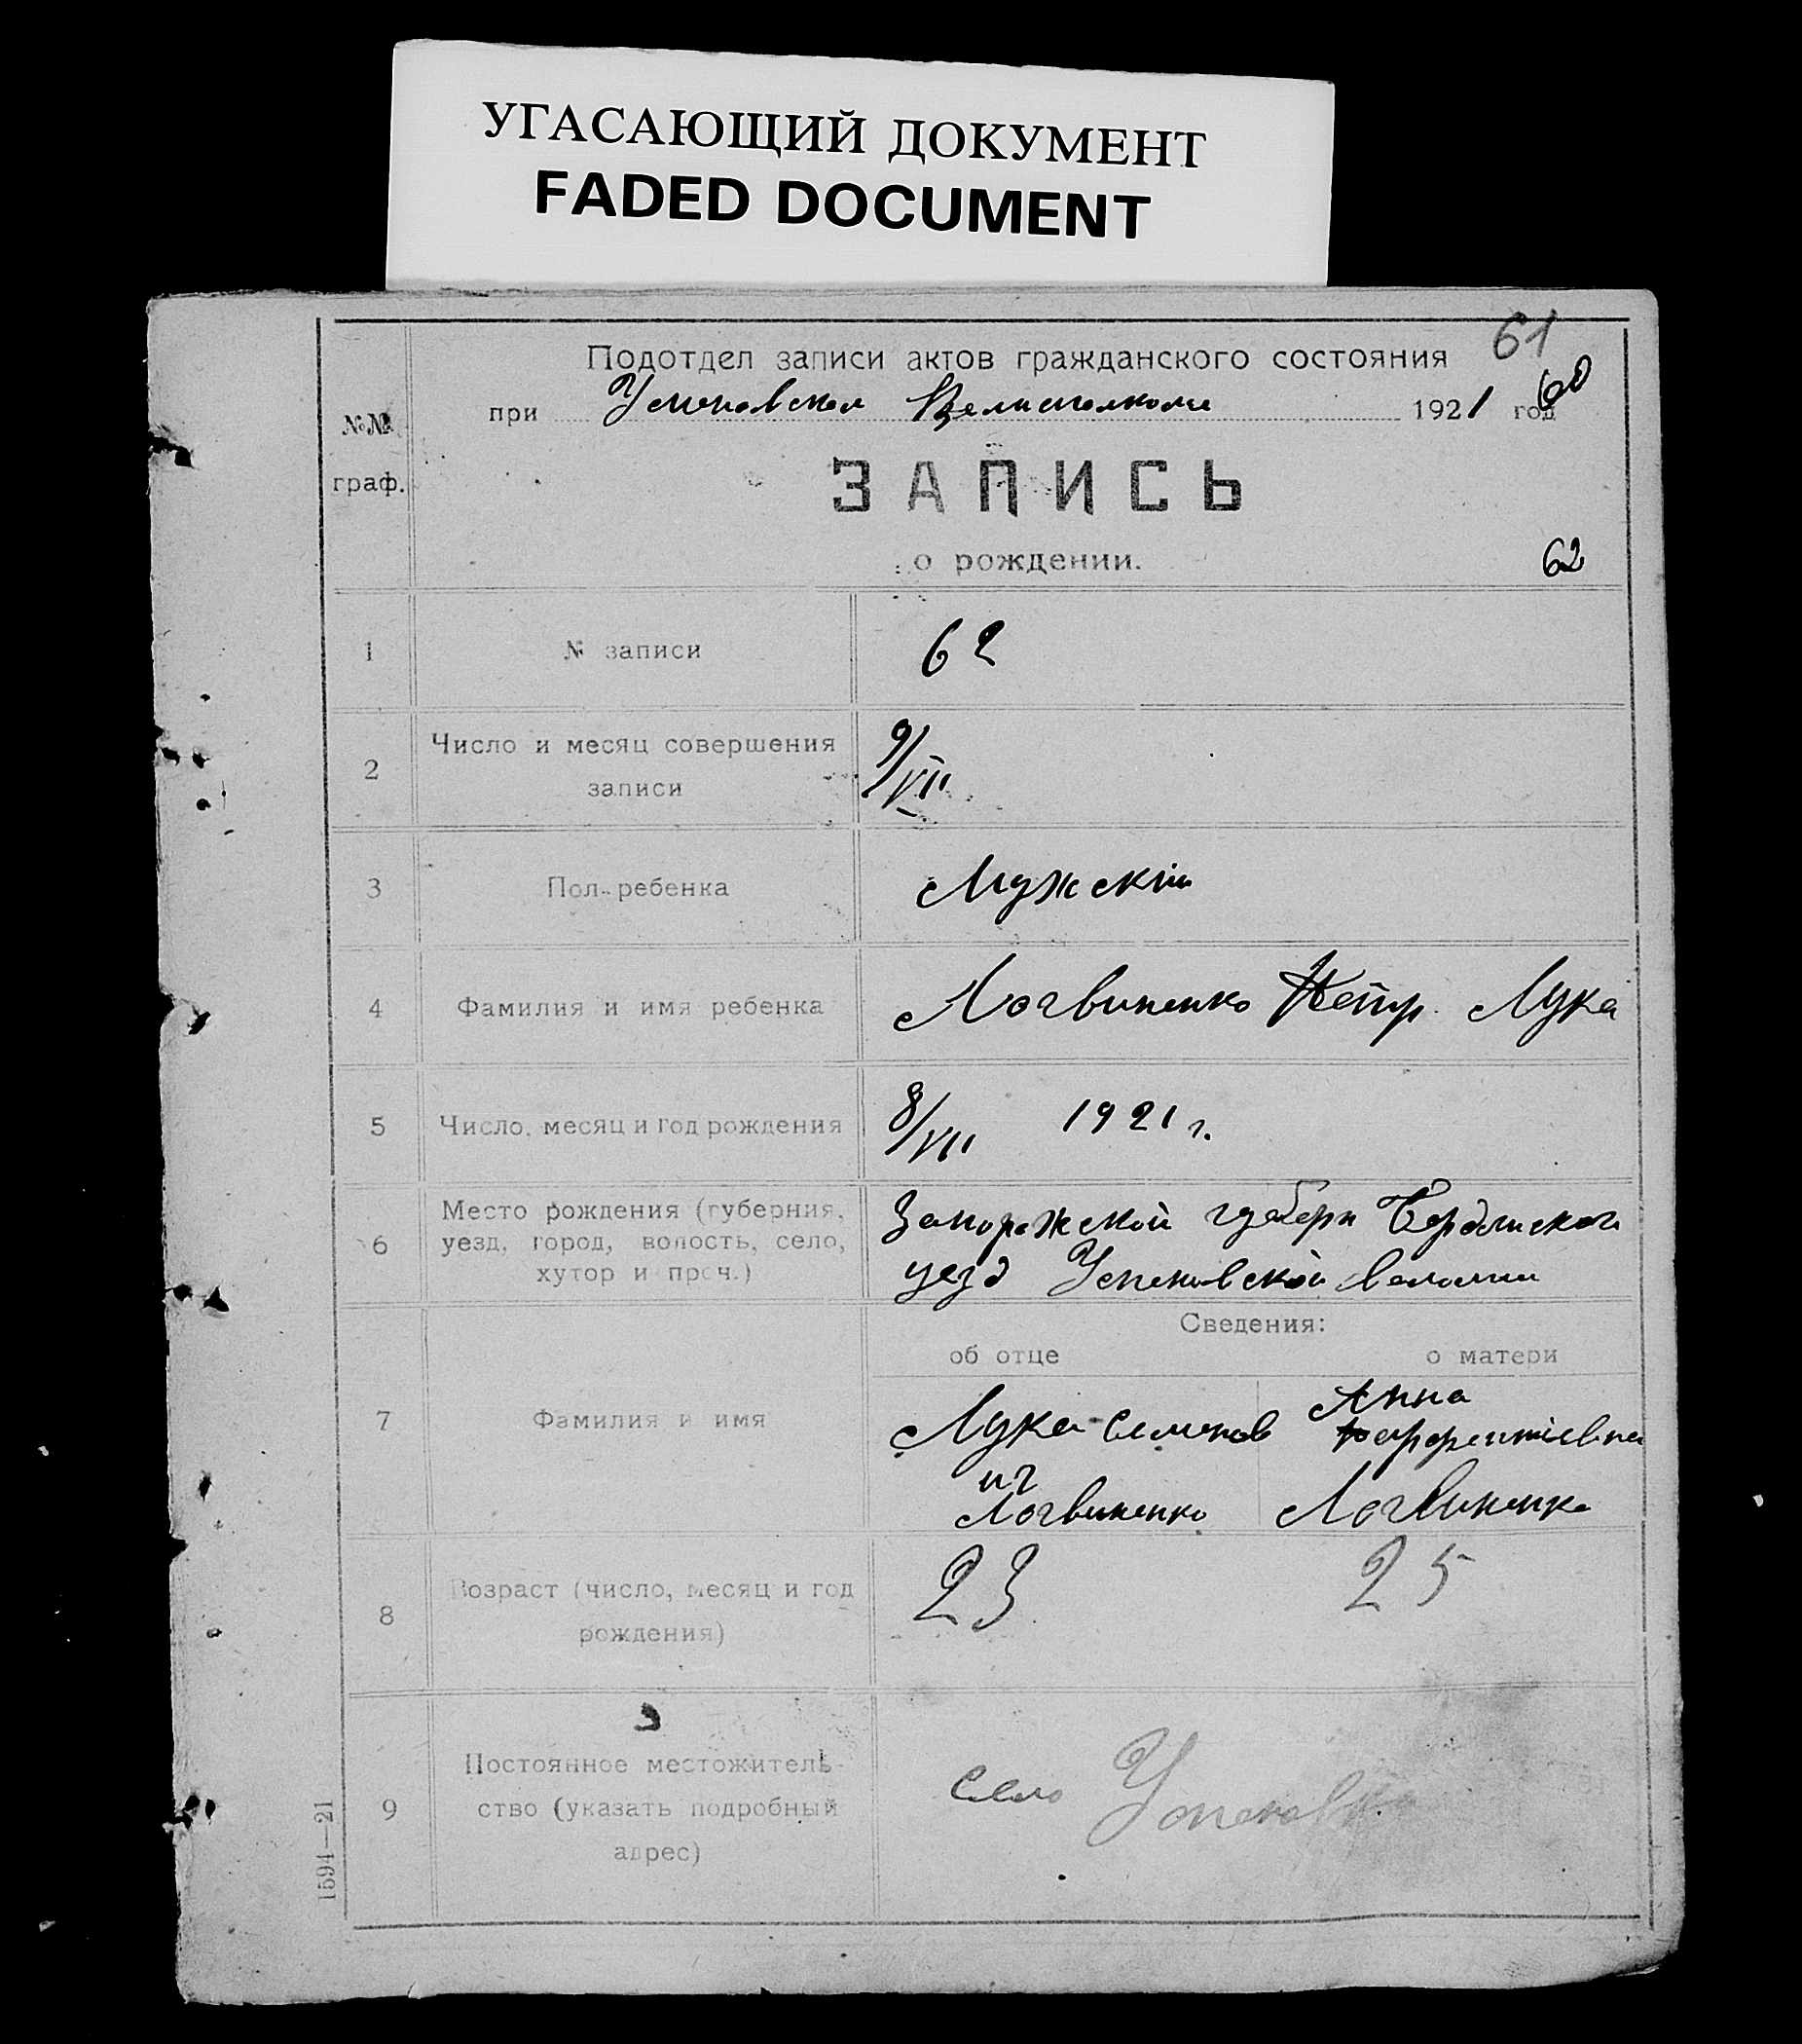 УГАСАЮЩИЙ ДОКУМЕНТ
FADED DOCUMENT
61
60
Подотдел записи актов гражданского состояния
при Успеновском Волисполкоме 1921 год
№№ граф.
ЗАПИСЬ
о рождении.
62
1 № записи 62
2 Число и месяц совершения
записи 9/VII
3 Пол ребенка Мужскій
4 Фамилия и имя ребенка Логвиненко Петр Лука
5 Число, месяц и год рождения 8/VII 1921 г.
6 Место рождения (губерния,
уезд, город, волость, село,
хутор и проч.)
Запорожской губерн Бердянского
уезд Успеновской волости
Сведения:
об отце о матери
7 Фамилия и имя
Лука Семенов
ич
Логвиненко
Анна
Логвиненко
8 Возраст (число, месяц и год
рождения) 23 25
9 Постоянное местожитель-
ство (указать подробный
адрес)
Село Успеновка
1594—21